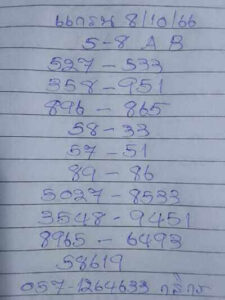 8/10/66
5-8 A B
527-533
358-951
896-865
58-33
57-51
89-86
5027-8533
3548-9451
8965-6493
58619
057-1264633